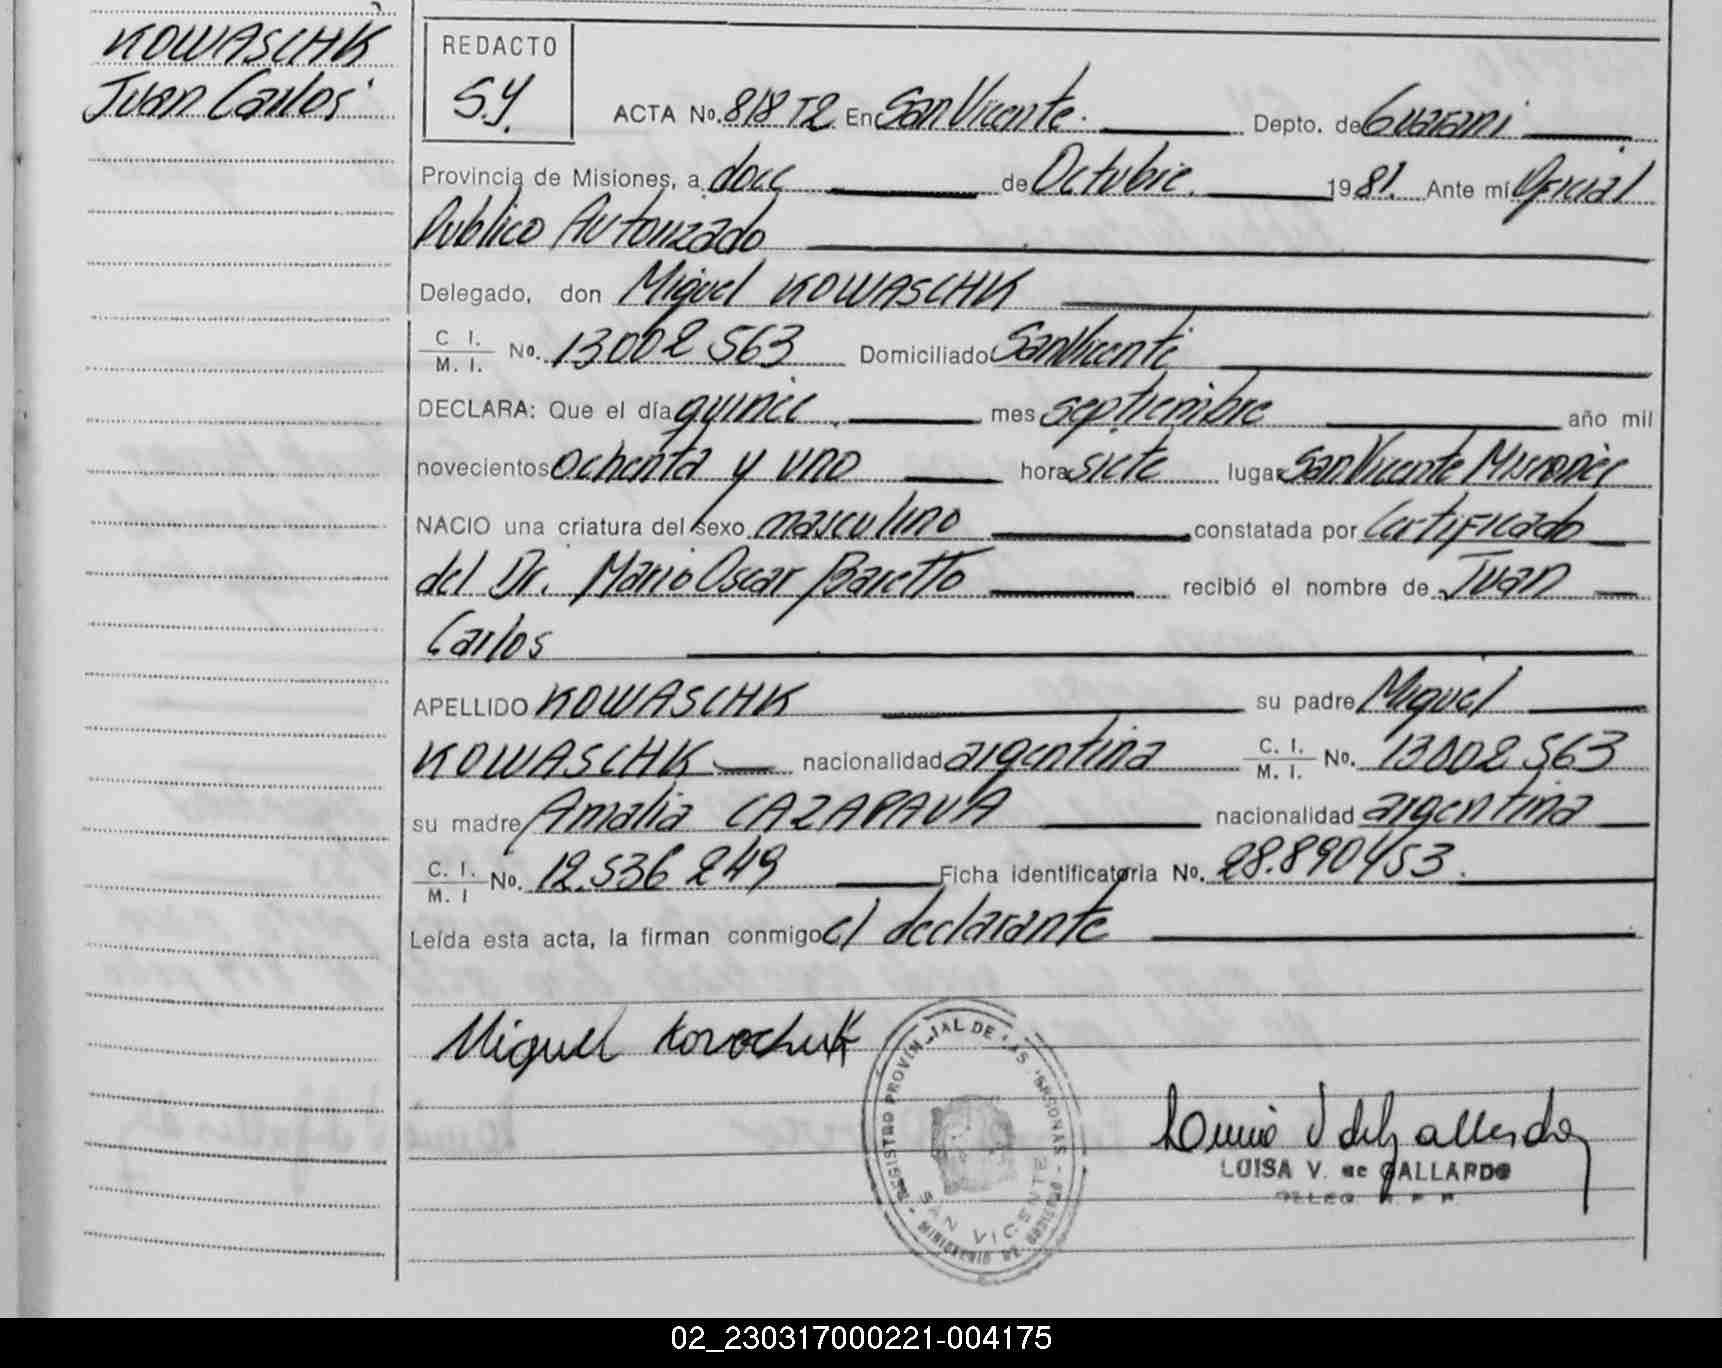 KOWASCHK
Juan Carlos
REDACTO
S.Y.
ACTA No. 818 T2 En San Vicente. Depto. de Guarani
Provincia de Misiones, a doce de Octubre. 1981. Ante mí Oficial
Publico Autorizado
Delegado, don Miguel KOWASCHK
C. I. / M. I. No. 13002563 Domiciliado San Vicente
DECLARA: Que el día quince mes septiembre año mil
novecientos ochenta y uno hora siete lugar San Vicente Misiones
NACIO una criatura del sexo masculino constatada por Certificado
del Dr. Mario Oscar Baretto recibió el nombre de Juan
Carlos
APELLIDO KOWASCHK su padre Miguel
KOWASCHK nacionalidad argentina C. I. / M. I. No. 13002563
su madre Amalia nacionalidad argentina
C. I. / M. I No. 12.536 249 Ficha identificatoria No. 28.890453.
Leída esta acta, la firman conmigo el declarante
Miguel
REGISTRO PROVINCIAL DE LAS PERSONAS - MINISTERIO DE GOBIERNO
SAN VICENTE
LUISA V. de GALLARDO
DELEG. R. P. P.
02_230317000221-004175